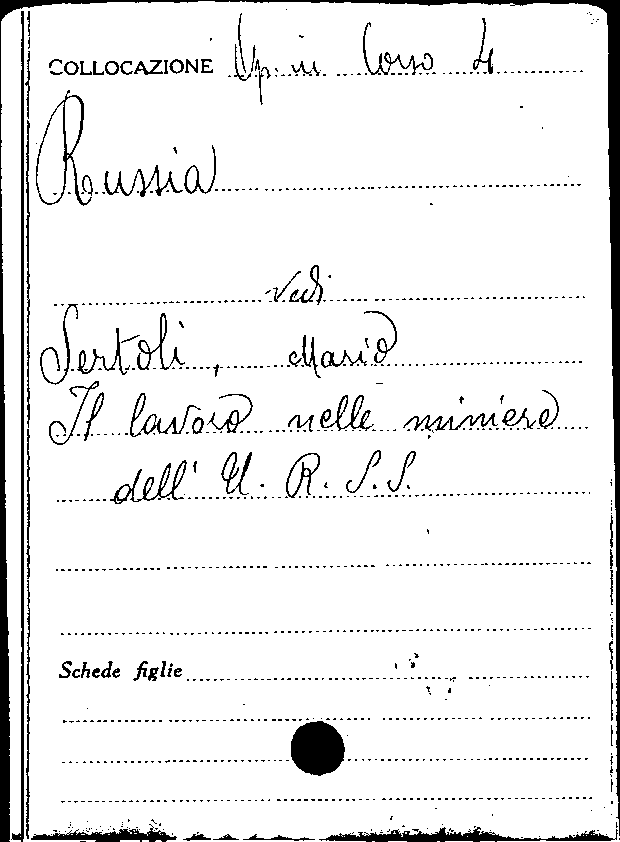 COLLOCAZIONE Op. in Corso 4
Russia
Vedi
Sertoli, Mario
Il lavoro nelle miniere
dell' U. R. S. S.
Schede figlie